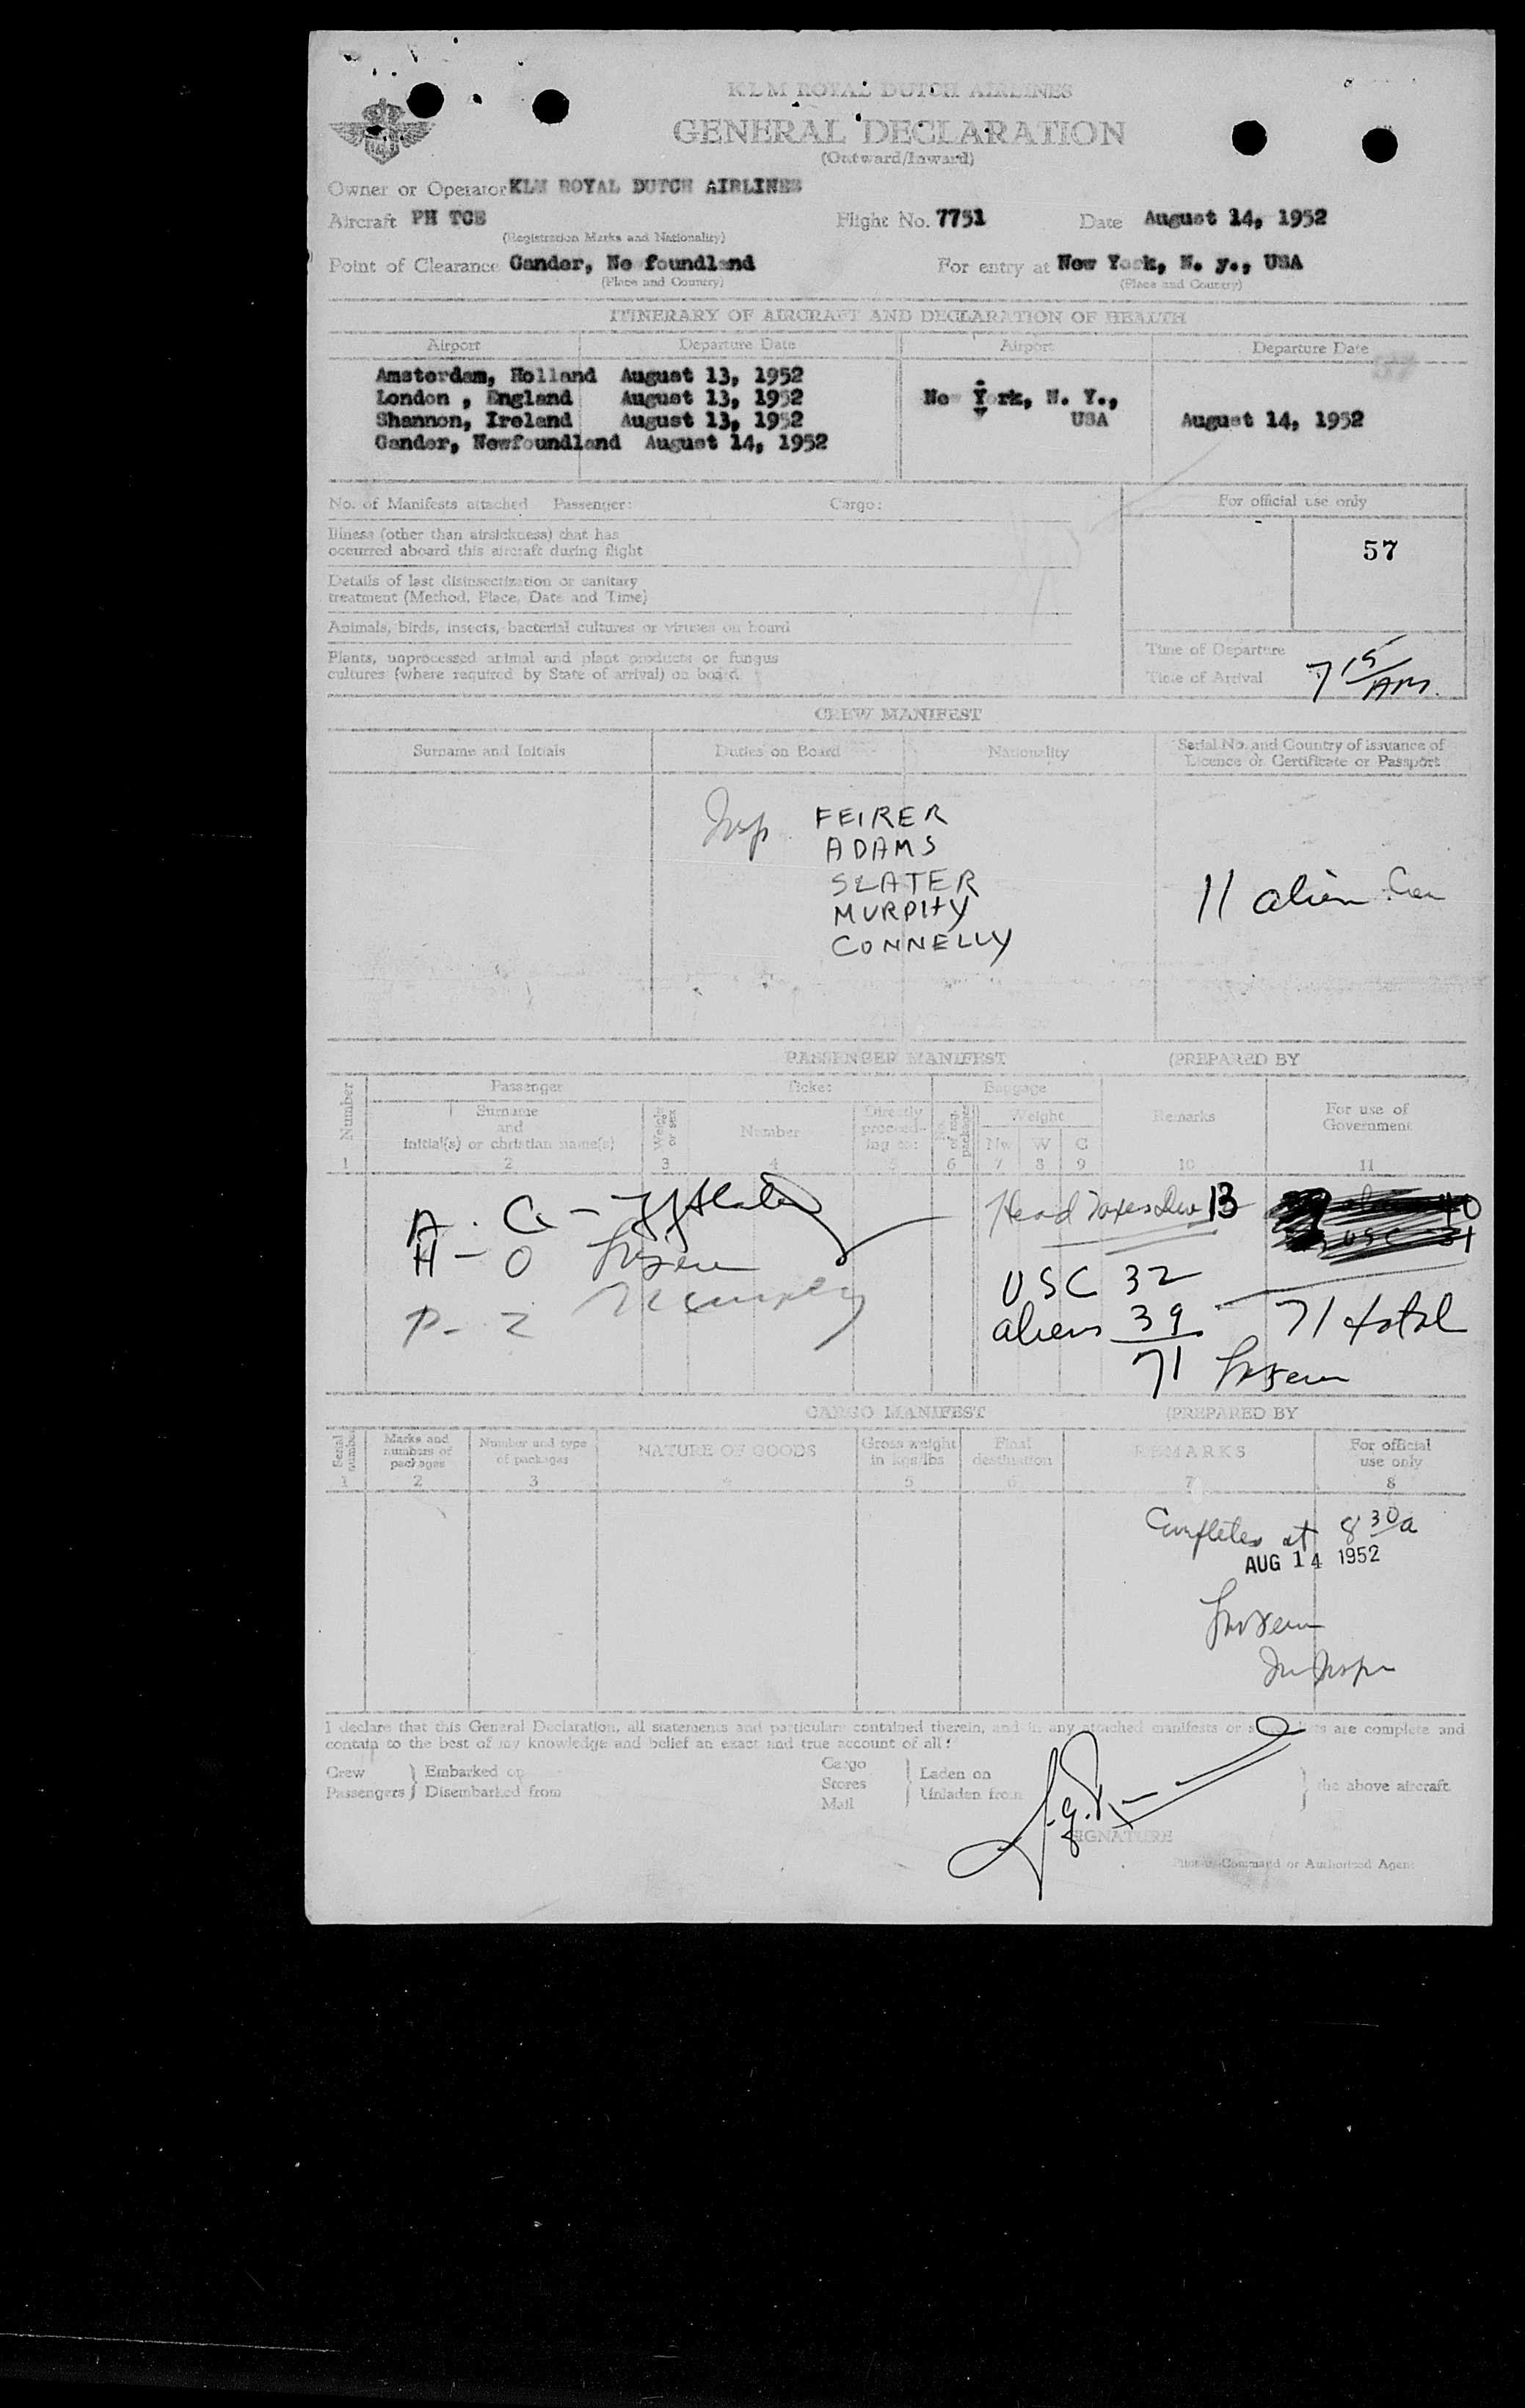 KLM ROYAL DUTCH AIRLINES
GENERAL DECLARATION
(Outward/Inward)
Owner or Operator KLM ROYAL DUTCH AIRLINES
Aircraft PH TCE Flight No. 7751 Date August 14, 1952
(Registration Marks and Nationality)
Point of Clearance Gander, Newfoundland For entry at New York, N. y., USA
(Place and Country) (Place and Country)
ITINERARY OF AIRCRAFT AND DECLARATION OF HEALTH
Airport Departure Date Airport Departure Date
Amsterdam, Holland August 13, 1952
London , England August 13, 1952 New York, N. Y.,
Shannon, Ireland August 13, 1952 USA August 14, 1952
Gander, Newfoundland August 14, 1952
No. of Manifests attached Passenger: Cargo: For official use only
Illness (other than airsickness) that has
occurred aboard this aircraft during flight
57
Details of last disinsectization or sanitary
treatment (Method, Place, Date and Time)
Animals, birds, insects, bacterial cultures or viruses on board
Plants, unprocessed animal and plant products or fungus
cultures (where required by State of arrival) on board
Time of Departure
Time of Arrival 7 15 AM.
CREW MANIFEST
Surname and Initials Duties on Board Nationality Serial No. and Country of issuance of
Licence or Certificate or Passport
Insp FEIRER
ADAMS
SLATER
MURPHY
CONNELLY
11 alien Crew
PASSENGER MANIFEST (PREPARED BY
Number Passenger Ticket Baggage
Surname
and
initial(s) or christian name(s)
Weight or sex Number Directly proceeding to: No. of reg. packages Weight Remarks For use of Government
Nw W C
1 2 3 4 5 6 7 8 9 10 11
A . G - Slater
H - O
P - Z Murphy
Head Taxes Due 13
USC 32
aliens 39
71
71 total
CARGO MANIFEST (PREPARED BY
Serial number Marks and numbers of packages Number and type of packages NATURE OF GOODS Gross weight in kgs/lbs Final destination REMARKS For official use only
1 2 3 4 5 6 7 8
Completed at 8 30 a
AUG 14 1952
I declare that this General Declaration, all statements and particulars contained therein, and in any attached manifests or are complete and
contain to the best of my knowledge and belief an exact and true account of all:
Crew } Embarked on
Passengers } Disembarked from
Cargo
Stores
Mail
} Laden on
Unladen from
} the above aircraft.
SIGNATURE
Pilot-in-Command or Authorized Agent